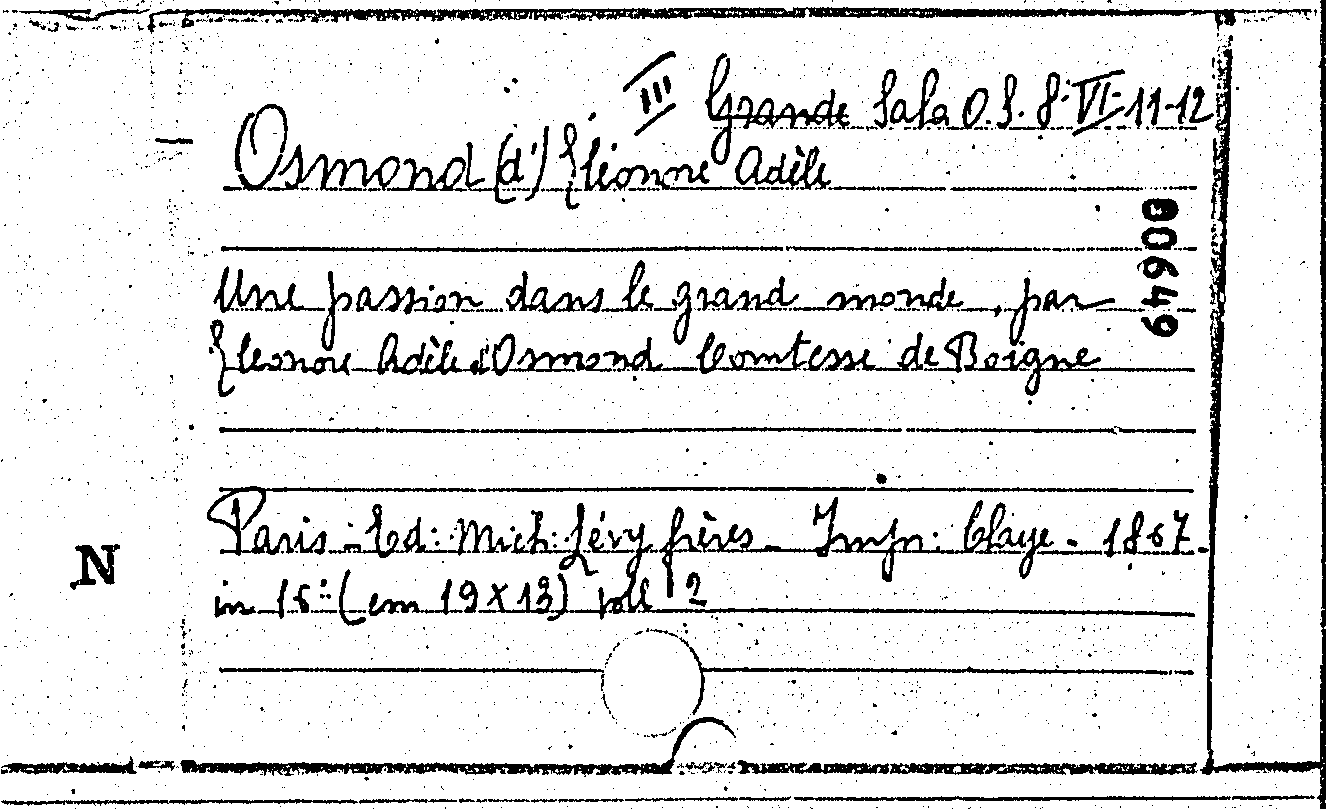 III Grande Sala O.S. 8-VI-11-12
Osmond (d') Eléonore Adèle
00649
Une passion dans le grand monde, par
Eleonore Adèle d'Osmond Comtesse de Boigne
Paris - Ed: Mich: Lévy frères - Impr: Claye - 1867.
N
in 16° (cm 19 x 13) voll 2